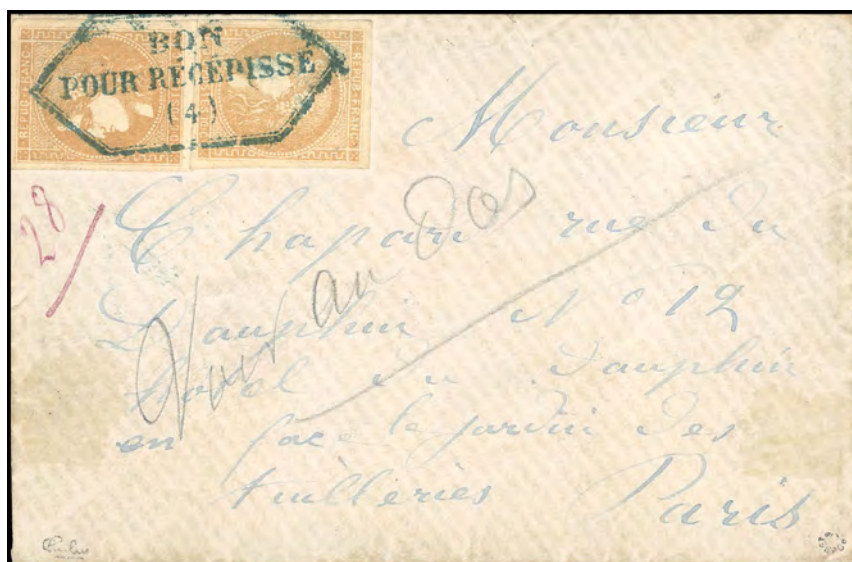 BON
POUR RÉCÉPISSÉ
(4)
REPUB FRANC
REPUB FRANC
28
Monsieur
Chapari rue du
Dauphin N° 12
hotel du Dauphin
en face le jardin des
tuilleries Paris
Voir au Dos